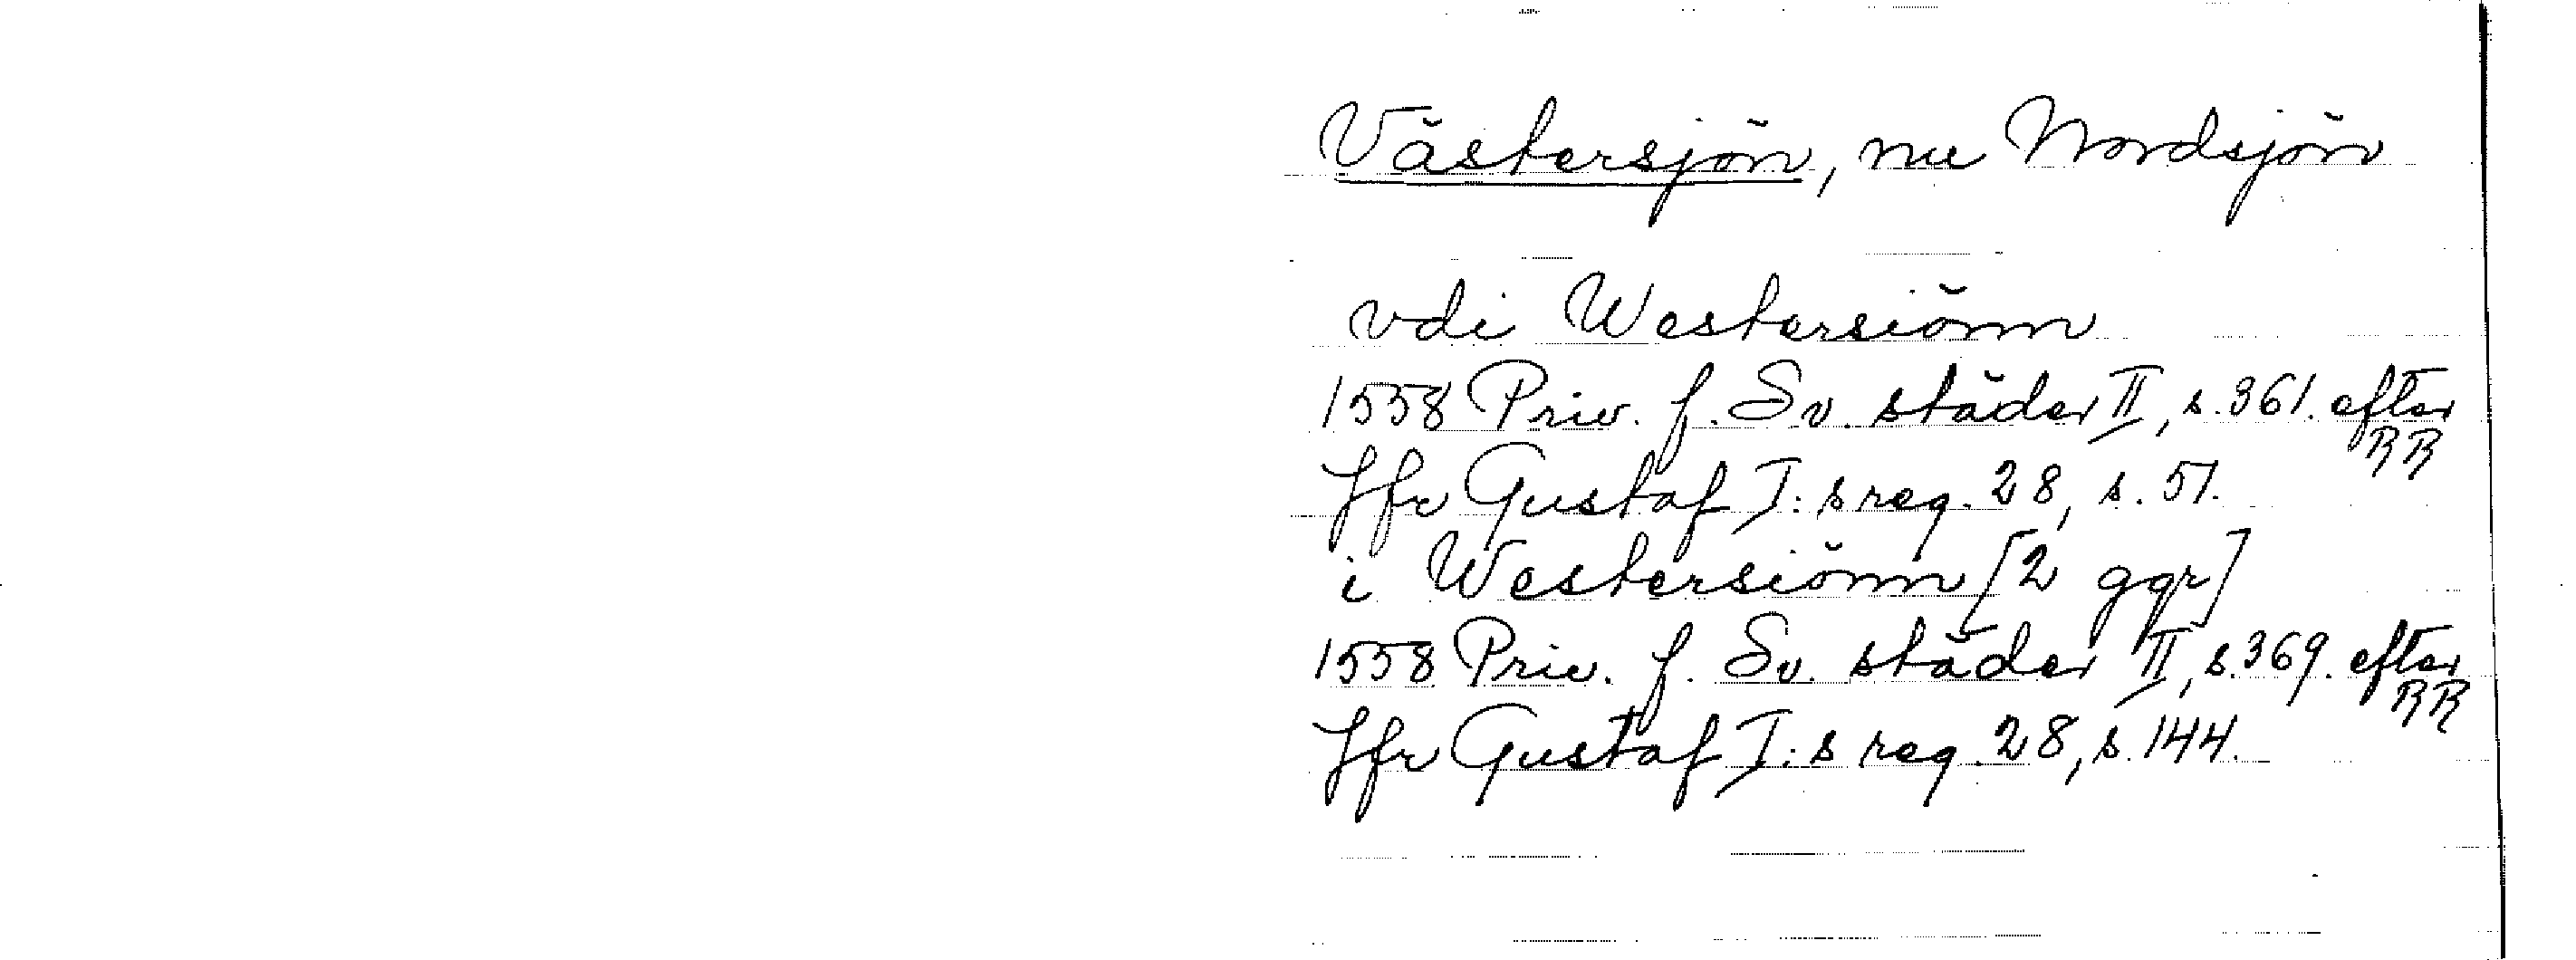 Västersjön, nu Nordsjön
vdi Westersiönn
1558 Priv. f. Sv. städer II, s. 361. efter RR
Jfr Gustaf I:s reg. 28, s. 51.
i Westersiönn [2 ggr]
1558 Priv. f. Sv. städer II, s. 369. efter RR
Jfr Gustaf I:s reg. 28, s. 144.